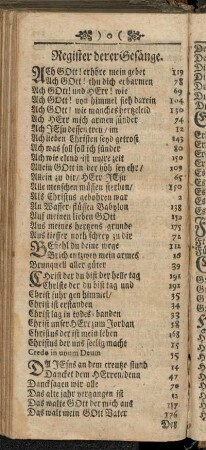 ) o (
Register derer Gesänge.
Ach GOtt! erhöre mein gebet 119
Ach GOtt! thu dich erbarmen 78
Ach GOtt und HErr! wie 69
Ach GOtt! von himmel sieh darein 104
Ach GOtt! wie manches hertzeleid 130
Ach HErr mich armen sünder 74
Ach JEsu dessen treu/ im 12
Ach lieben Christen seyd getrost 143
Ach was soll soll ich sünder 80
Ach wie elend ist unsre zeit 150
Allein GOtt in der höh sey ehr/ 109
Allein zu dir/ HErr JEsu 65
Alle menschen müssen sterben/ 150
Als Christus gebohren war 2
An Wasser-flüssen Babylon 138
Auf meinen lieben GOtt
Aus meines hertzens grunde 175
Aus tieffer noth schrey zu dir 72
Befiehl du deine wege 112
Brich entzwey mein armes 16
Brunquell aller güter 39
Christ der du bist der helle tag 191
Christe der du bist tag und 191
Christ fuhr gen himmel/ 35
Christ ist erstanden 34
Christ lag in todes-banden 33
Christ unser HErr zum Jordan 58
Christus der ist mein leben 168
Christus der uns seelig macht 15
Credo in unum Deum 15
Da JEsus an dem creutze stund 14
Dancket dem HErren/denn
Dancksagen wir alle 70
Das alte jahr vergangen ist
Das walte GOtt der mich aus 137
Das walt mein GOtt Vater 176